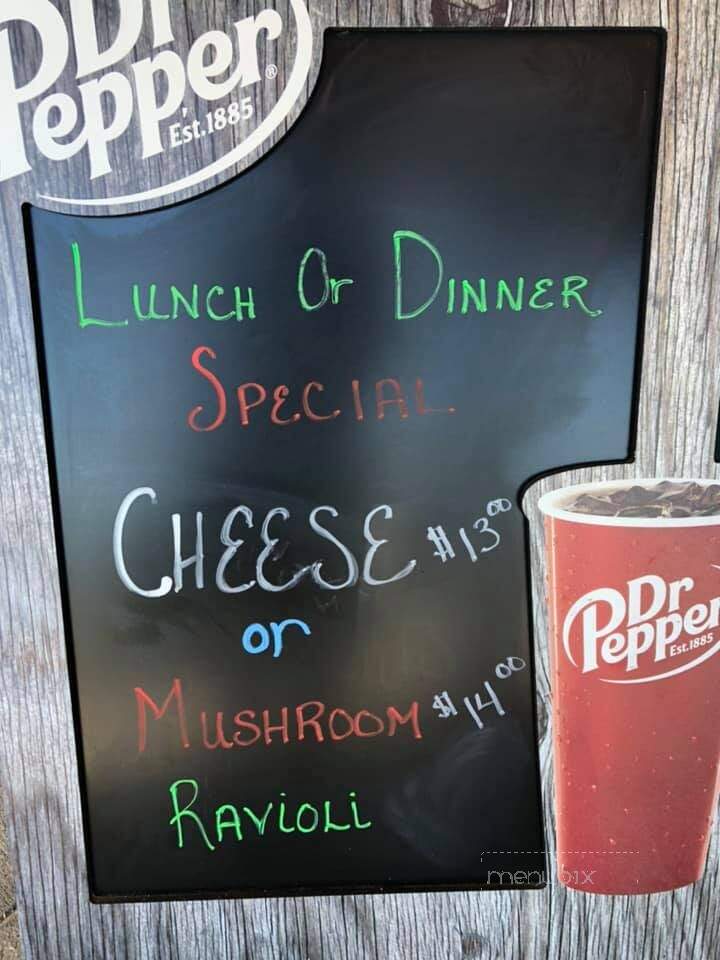 Dr
Pepper®
Est.1885
LUNCH Or DINNER
SPECIAL
CHEESE $13⁰⁰
or
MUSHROOM $14⁰⁰
RAViOLi
Dr
Pepper
Est.1885
menubix